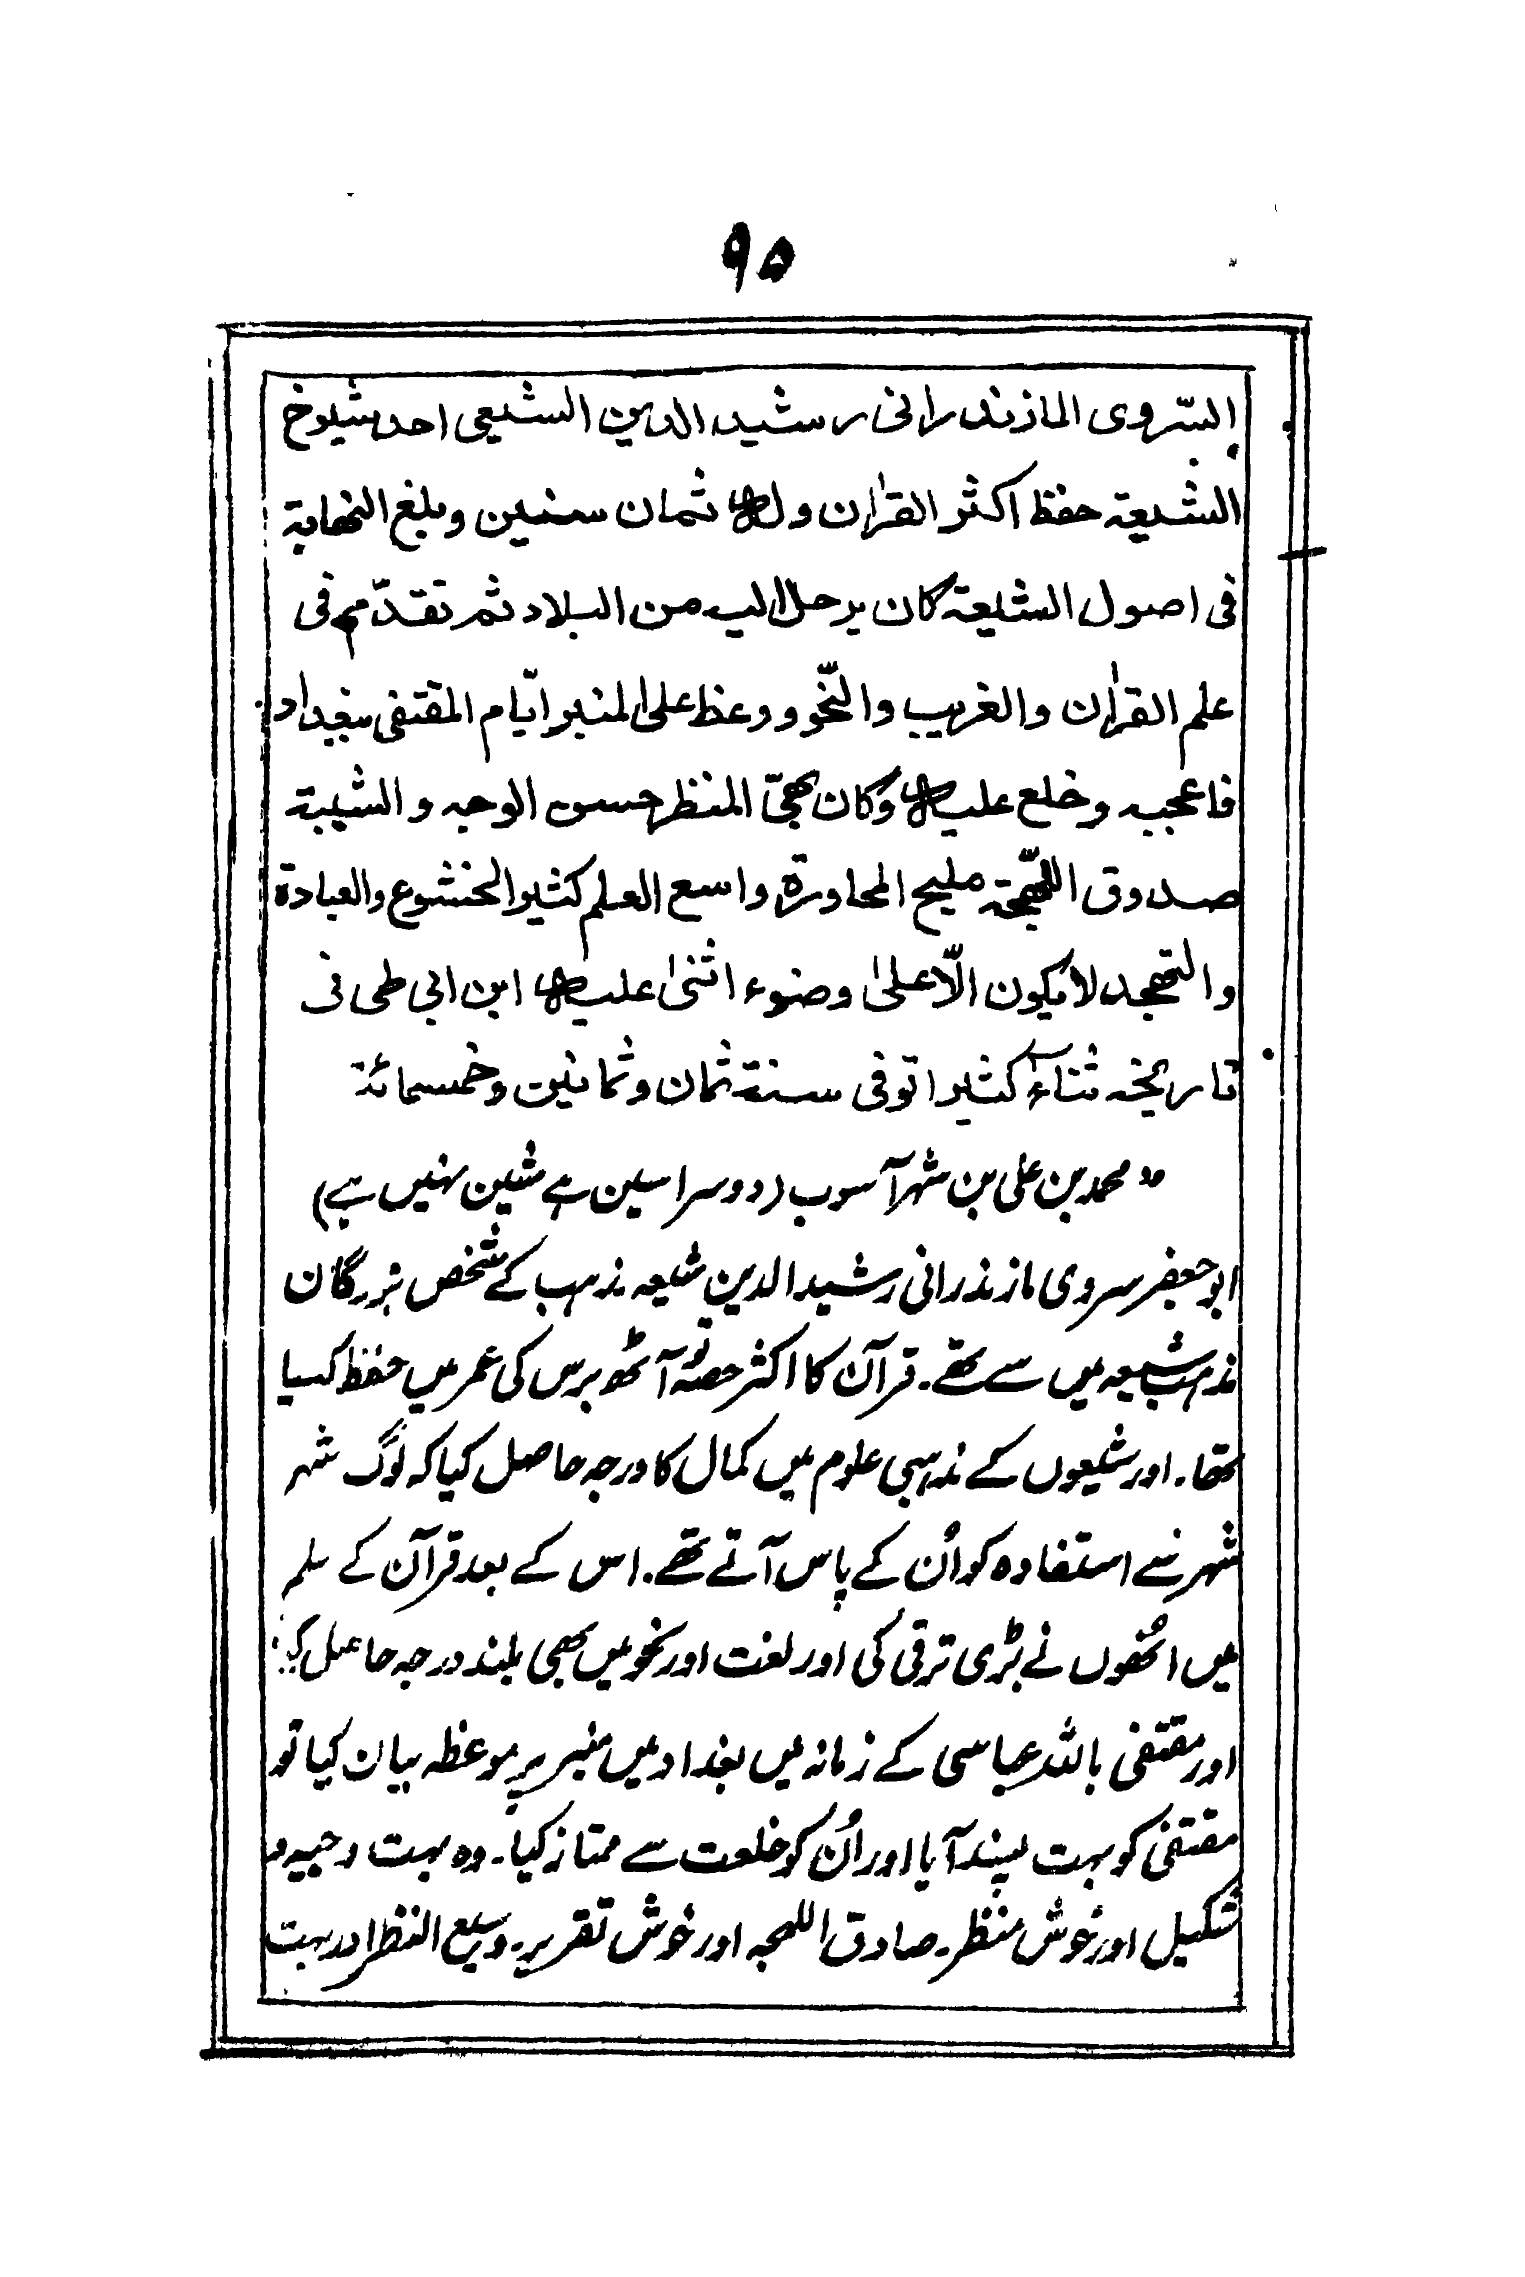 ۹۵
السّروی المازندرانی رشید الدین الشیعی احد شیوخ
الشیعة حفظ اکثر القراٰن وله ثمان سنین وبلغ النهایة
فی اصول الشیعة کان یرحل الیه من البلاد ثم تقدّم فی
علم القراٰن والغریب والنّحو ووعظ علی المنبر ایّام المقتفی ببغداد
فاعجبه وخلع علیه وکان بهیّ المنظر حسن الوجه والشیبة
صدوق اللّهجة ملیح المحاورة واسع العلم کثیر الخشوع والعبادة
والتهجد لا یکون الّا علیٰ وضوء اثنیٰ علیه ابن ابی طی فی
تاریخه ثناءً کثیرا توفی سنة ثمان وثمانین وخمسمائة
" محمد بن علی بن شہرآسوب (دوسرا سین ہے شین نہیں ہے)
ابوجعفر سروی مازندرانی رشید الدین شیعہ مذہب کے شخص بزرگان
مذہب شیعہ میں سے تھے۔ قرآن کا اکثر حصّہ تو آٹھ برس کی عمر میں حفظ کیا
تھا۔ اور شیعوں کے مذہبی علوم میں کمال کا درجہ حاصل کیا کہ لوگ شہر
شہر سے استفادہ کو اُن کے پاس آتے تھے۔ اس کے بعد قرآن کے علم
میں اُنھوں نے بڑی ترقی کی اور لغت اور نحو میں بھی بلند درجہ حاصل کیا
اور مقتفی باللہ عباسی کے زمانہ میں بغداد میں منبر پر موعظہ بیان کیا تو
مقتفی کو بہت پسند آیا اور اُن کو خلعت سے ممتاز کیا۔ وہ بہت وجیہ و
شکیل اور خوش منظر۔ صادق اللہجہ اور خوش تقریر۔ وسیع النظر اور بہت